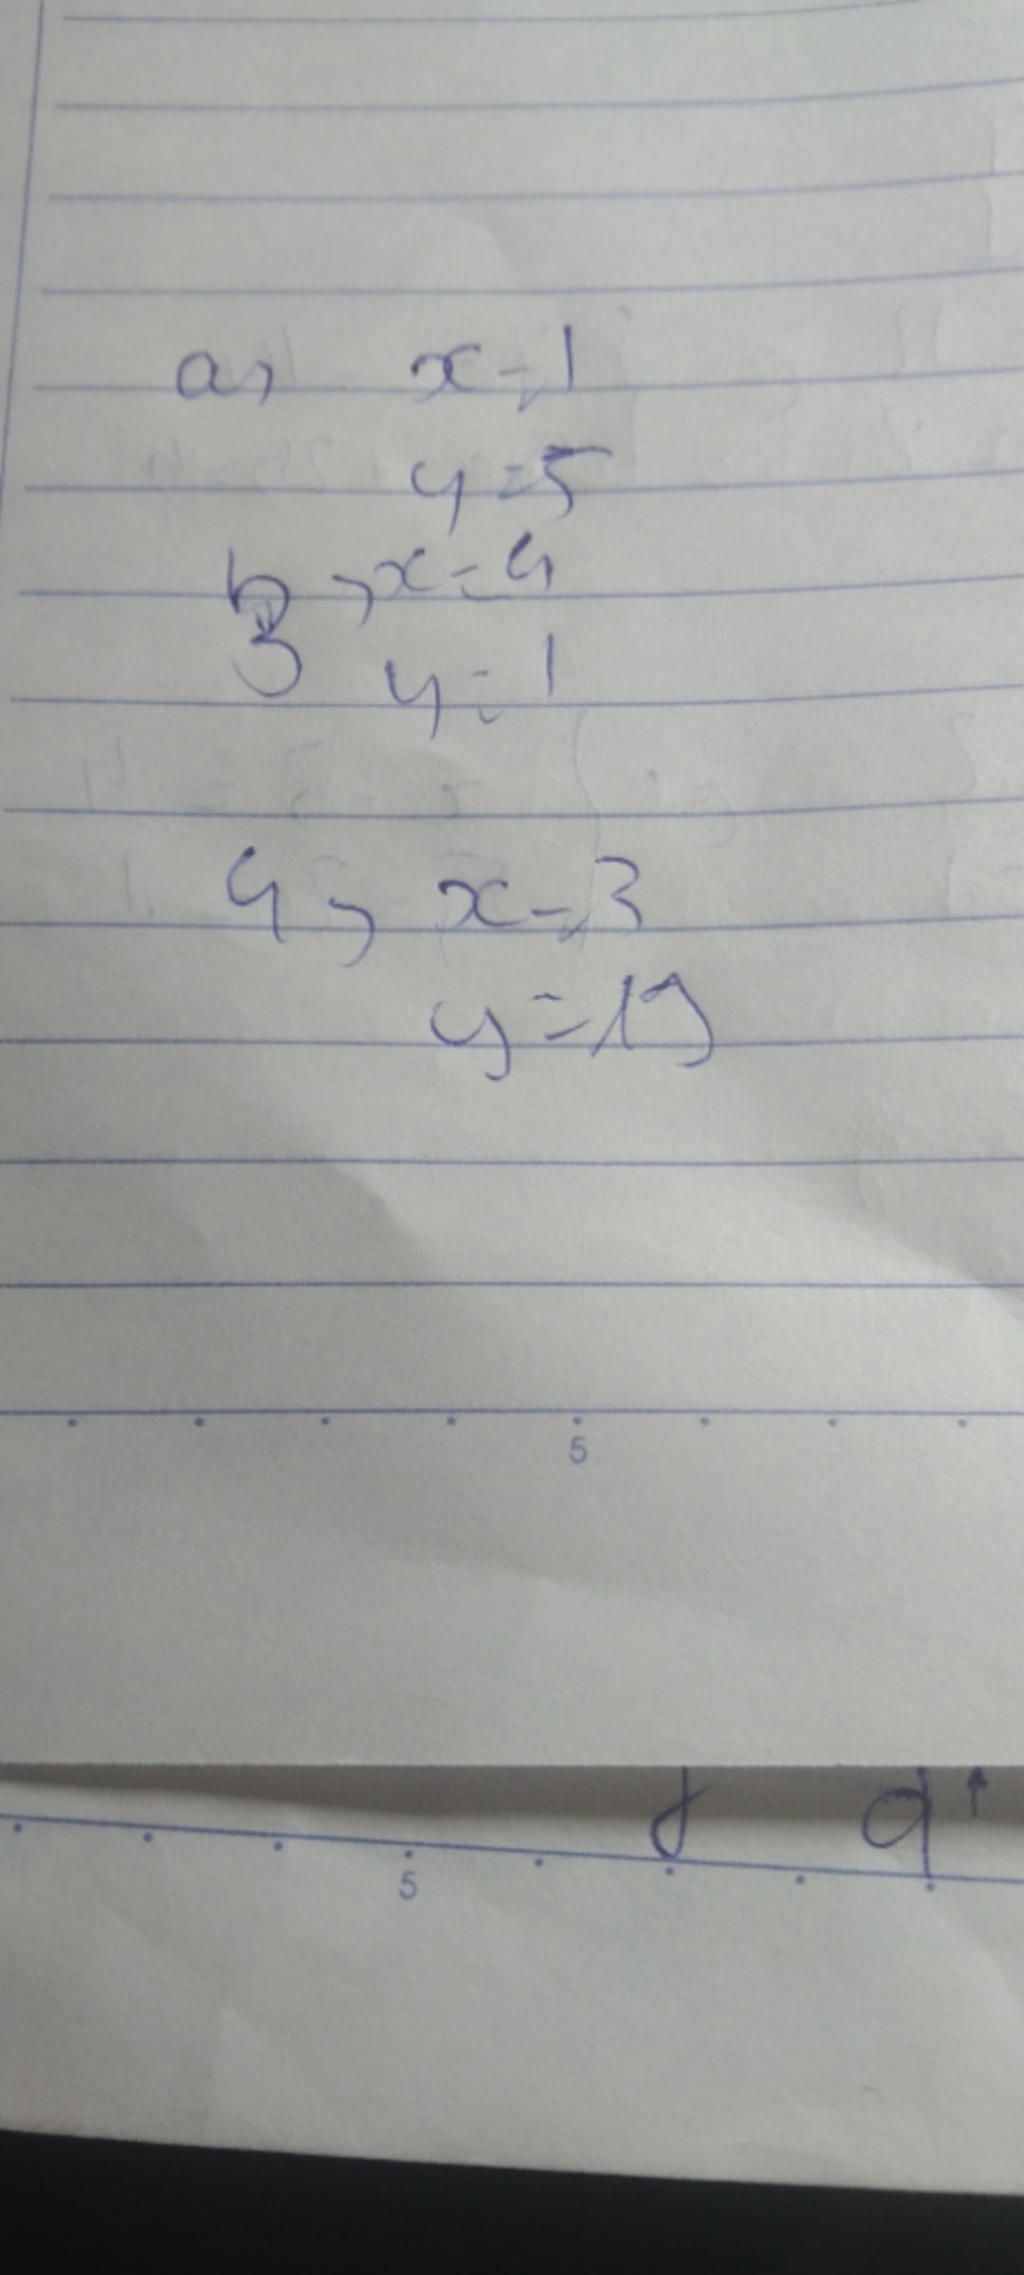 a, x = 1
y = 5
b, x = 4
3 y = 1
4, x = 3
y = 19
5
d q ↑
5